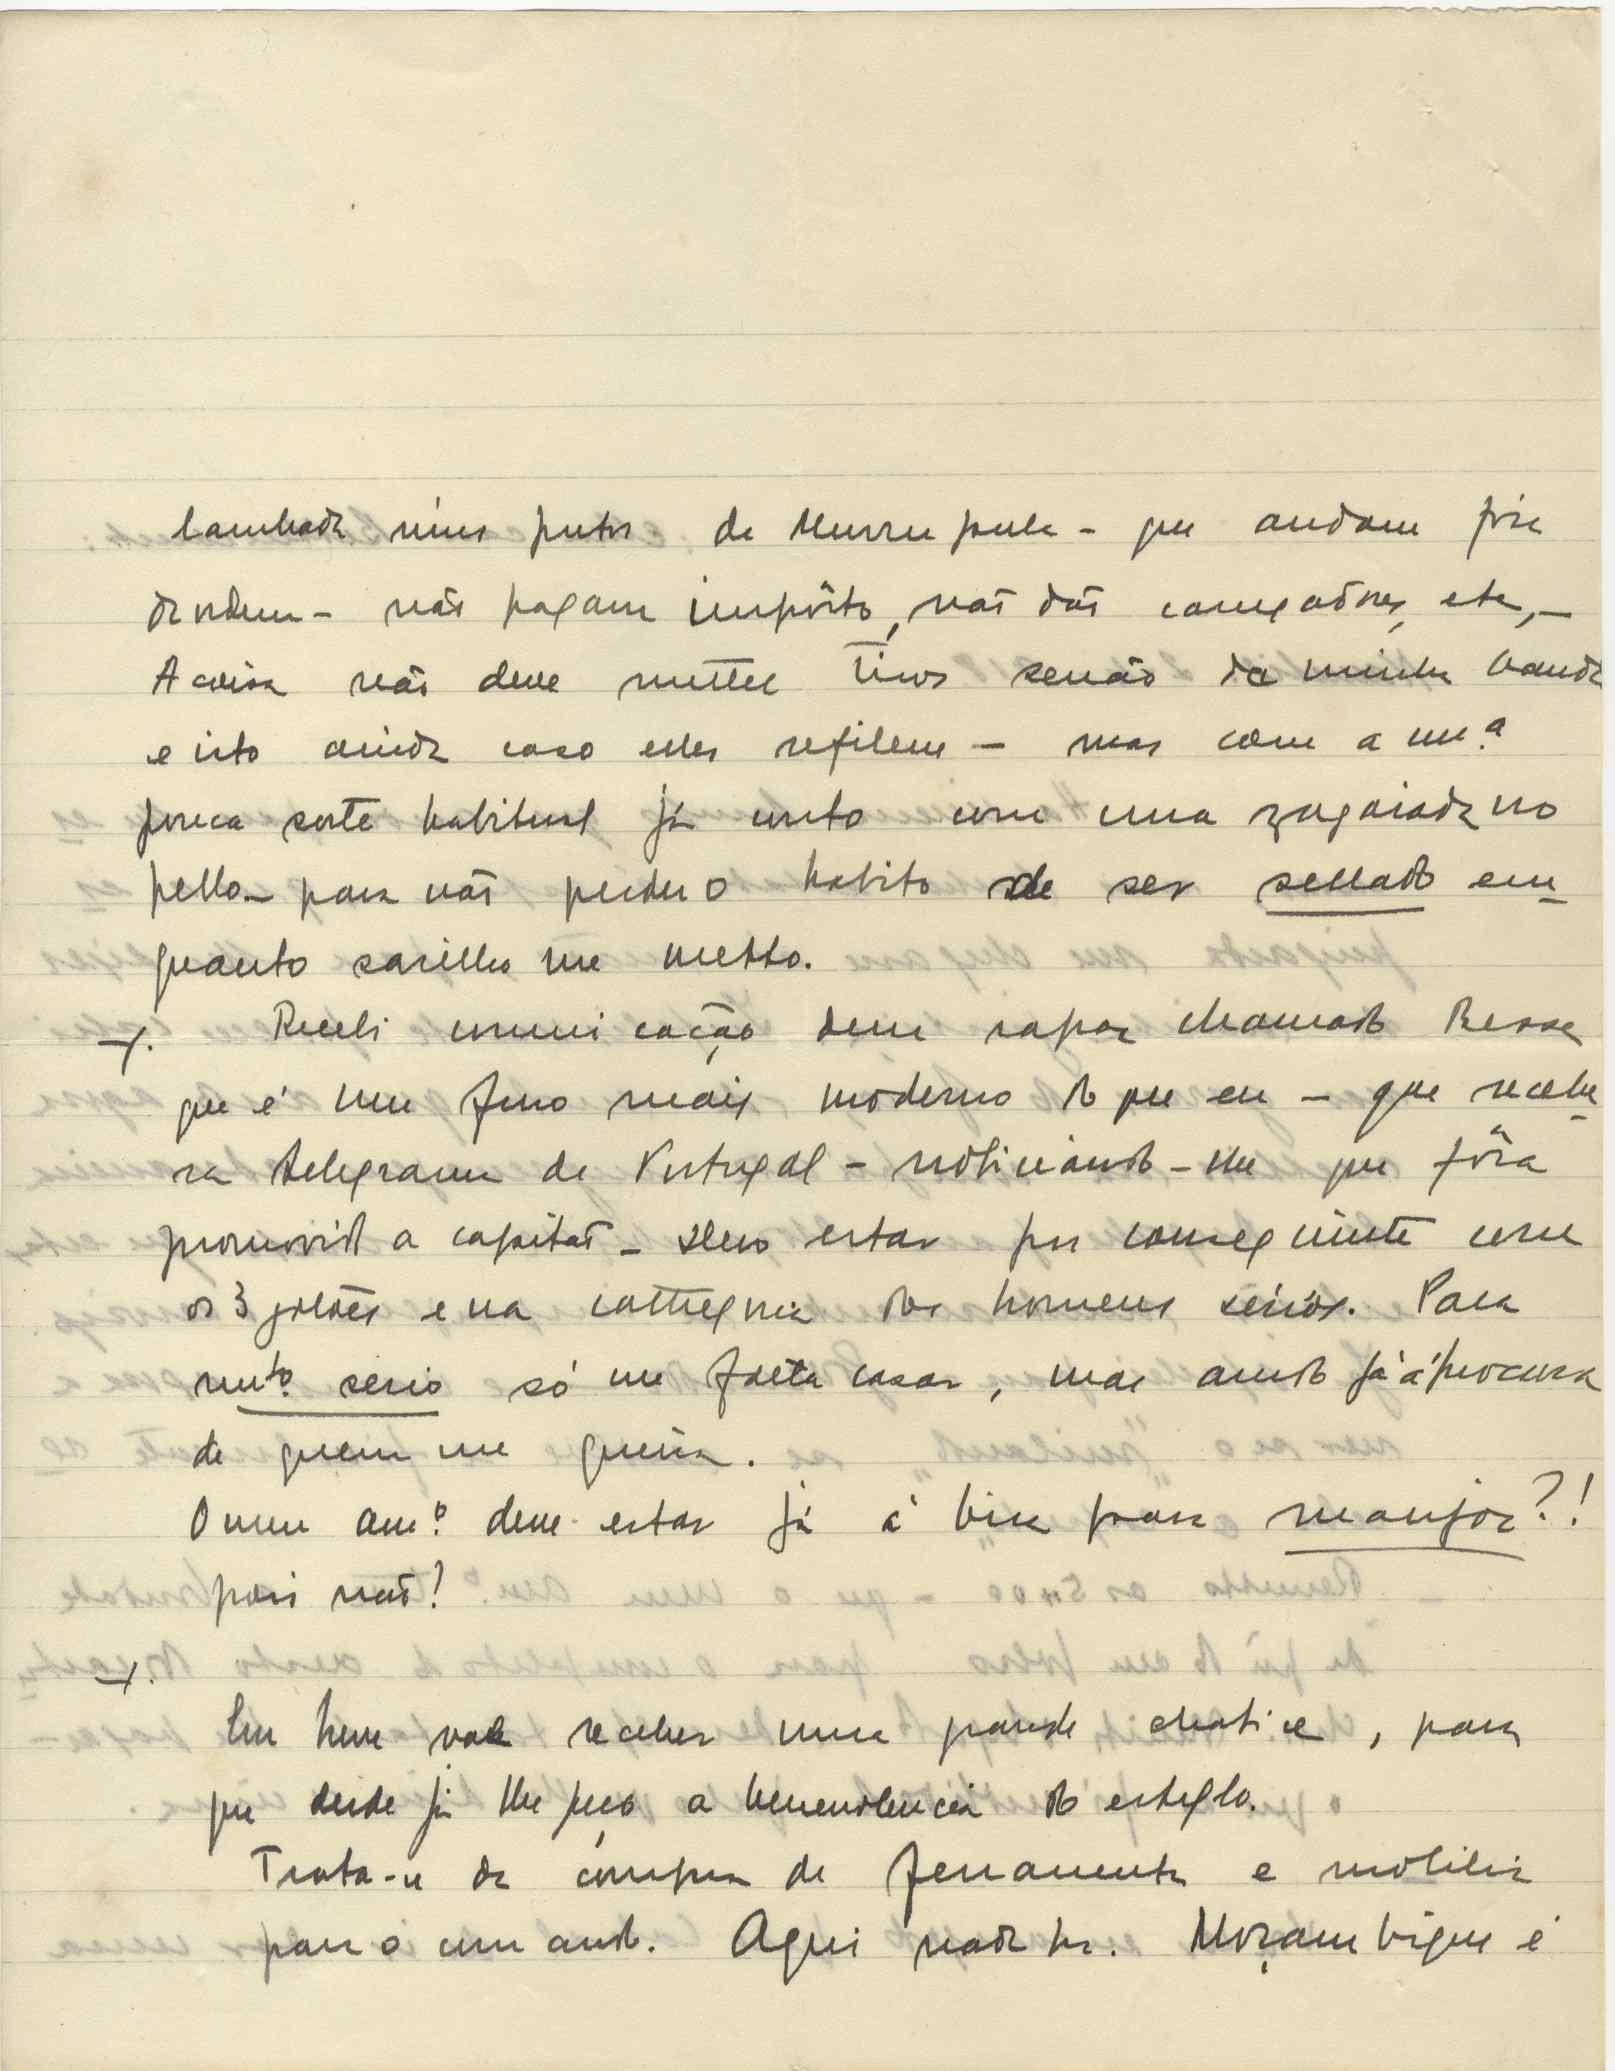 lambada nuns putos de Murrupula - que andam fóra
da ordem - não pagam impôsto, não dão carregadores, etc, -
A coisa não deve metter tiros senão da minha banda
e isto ainda caso elles refilem - mas com a m.ª
pouca sorte habitual já conto com uma zagaiada no
pello - para não perder o habito de ser sellado em
quanto sarilho me metto.
Recebi communicação dum rapaz chamado Bessa
que é um furo mais moderno do que eu - que recebe
ra telegrama de Portugal - noticiando-lhe que fôra
promovido a capitão - Devo estar por conseguinte com
os 3 galões e na cathegoria dos homens sérios. Para
mtº. serio só me falta casar, mas ando já á procura
de quem me queira.
O meu amº. deve estar já á bica para manjor?!
pois não?
Em breve vae receber uma grande chatice, para
que desde já lhe peço a benevolencia do estylo.
Trata-se da compra de ferramenta e mobilia
para o comando. Aqui nada ha. Moçambique é